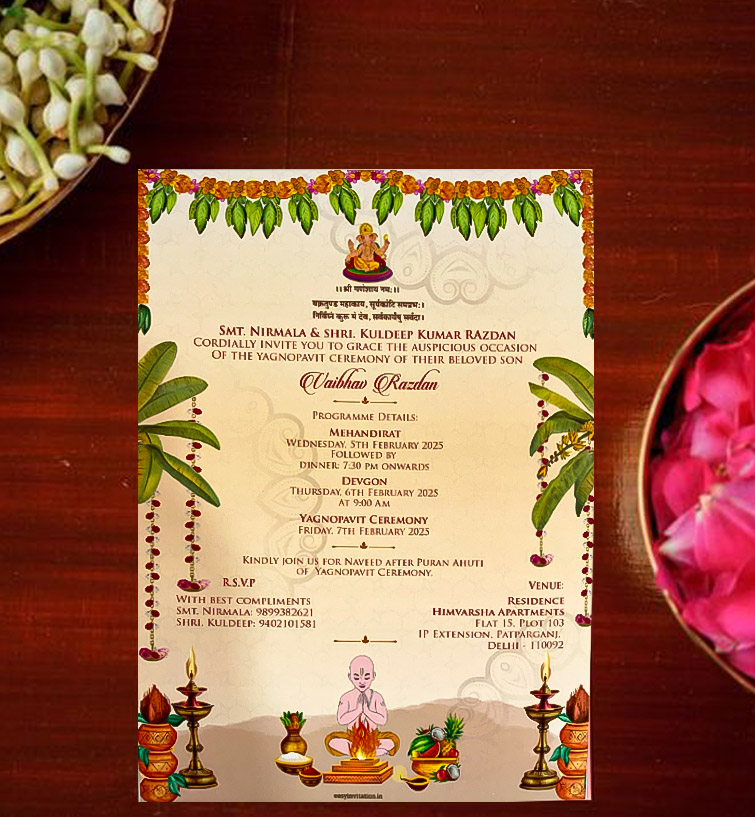 ।।श्री गणेशाय नमः।।
वक्रतुण्ड महाकाय, सूर्यकोटि समप्रभः।
निर्विघ्नं कुरु मे देव, सर्वकार्येषु सर्वदा।
Smt. Nirmala & shri. Kuldeep Kumar RAzdan
Cordially invite you to grace the auspicious occasion
Of the yagnopavit ceremony of their beloved son
Vaibhav Razdan
Programme Details:
Mehandirat
Wednesday, 5th February 2025
Followed by
dinner: 7:30 pm onwards
Devgon
Thursday, 6th February 2025
At 9:00 Am
Yagnopavit Ceremony
Friday, 7th February 2025
Kindly join us for Naveed after Puran Ahuti
of Yagnopavit Ceremony.
R.S.V.P
With best compliments
Smt. Nirmala: 9899382621
Shri. Kuldeep: 9402101581
Venue:
Residence
Himvarsha Apartments
Flat 15, Plot 103
IP Extension, Patparganj,
Delhi - 110092
easyinvitation.in